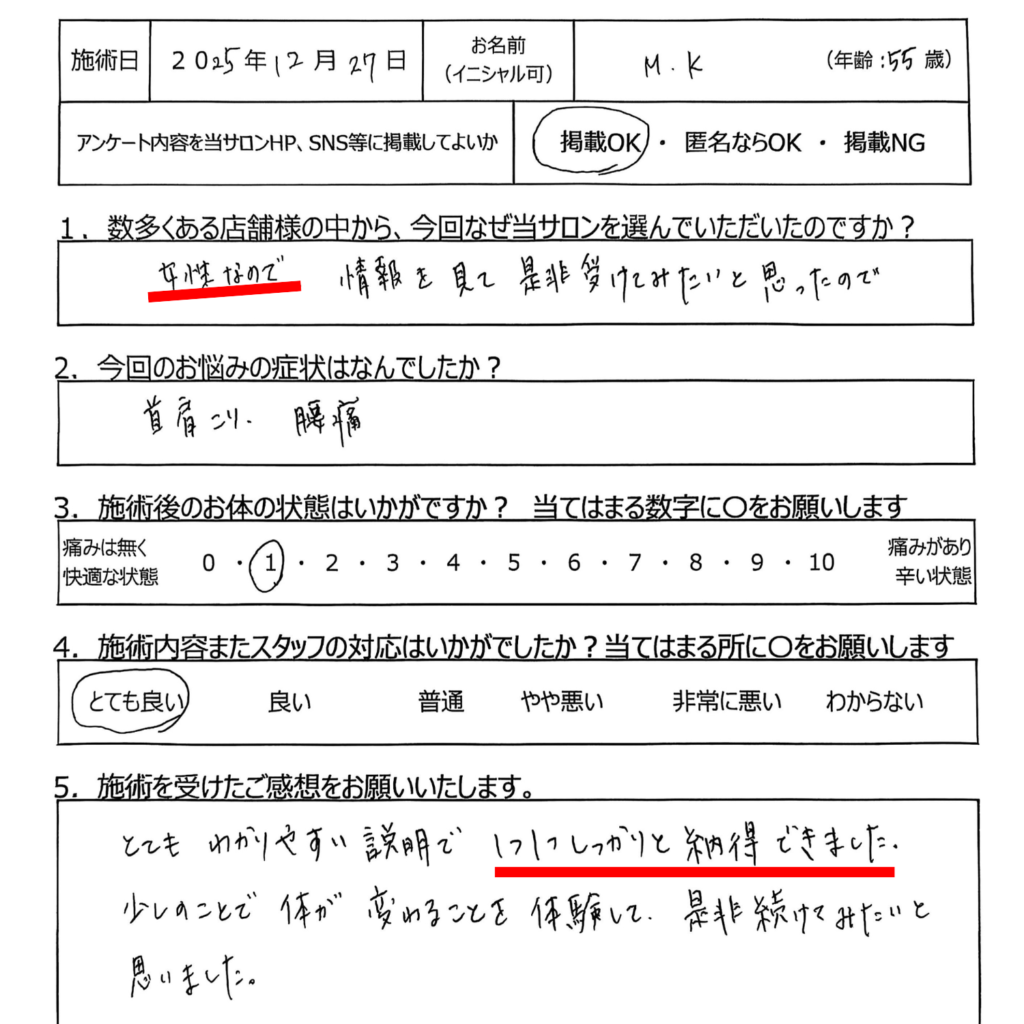 施術日 2025年12月27日 お名前 (イニシャル可) M.K (年齢:55歳)
アンケート内容を当サロンHP、SNS等に掲載してよいか 掲載OK ・ 匿名ならOK ・ 掲載NG
1. 数多くある店舗様の中から、今回なぜ当サロンを選んでいただいたのですか？
女性なので 情報を見て是非受けてみたいと思ったので
2. 今回のお悩みの症状はなんでしたか？
首肩こり. 腰痛
3. 施術後のお体の状態はいかがですか？ 当てはまる数字に〇をお願いします
痛みは無く 快適な状態 0 ・ 1 ・ 2 ・ 3 ・ 4 ・ 5 ・ 6 ・ 7 ・ 8 ・ 9 ・ 10 痛みがあり 辛い状態
4. 施術内容またスタッフの対応はいかがでしたか？当てはまる所に〇をお願いします
とても良い 良い 普通 やや悪い 非常に悪い わからない
5. 施術を受けたご感想をお願いいたします。
とても わかりやすい説明で 1つ1つしっかりと納得できました.
少しのことで 体が 変わることを体験して. 是非続けてみたいと
思いました。